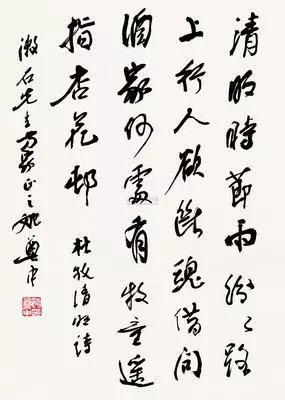 清明時節雨紛〻路
上行人欲斷魂借問
酒家何處有牧童遥
指杏花邨
杜牧清明詩
石先生方家正之姚奠中